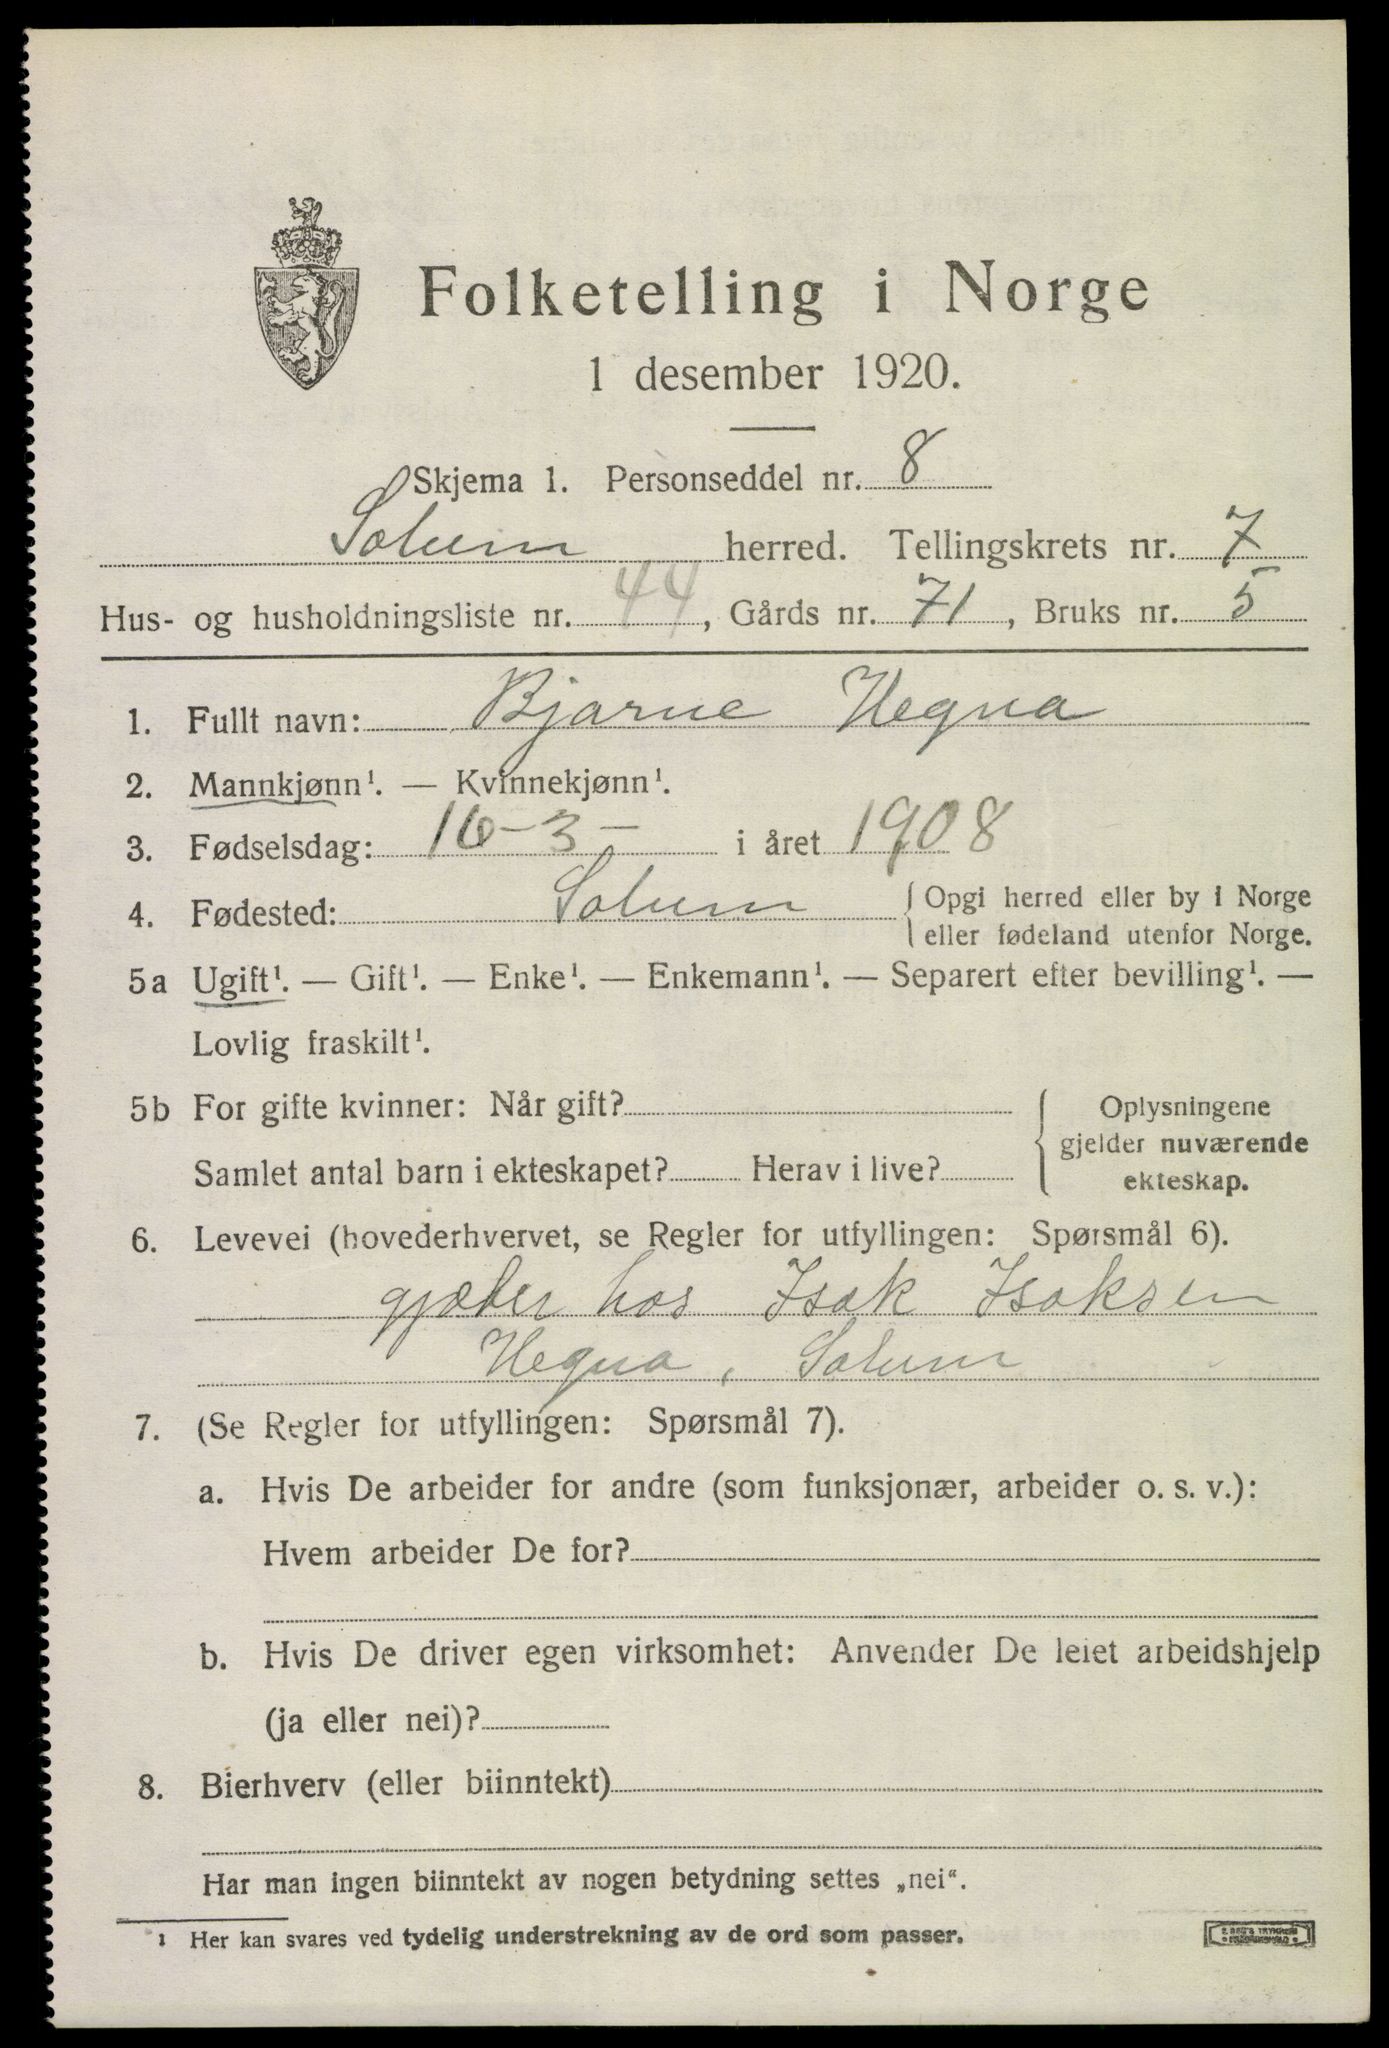 Folketelling i Norge
1 desember 1920.
Skjema 1. Personseddel nr. 8
Solum herred. Tellingskrets nr. 7
Hus- og husholdningsliste nr. 44, Gårds nr. 71, Bruks nr. 5
1. Fullt navn: Bjarne Hegna
2. Mannkjønn¹. — Kvinnekjønn¹.
3. Fødselsdag: 16-3- i året 1908
4. Fødested: Solum { Opgi herred eller by i Norge
eller fødeland utenfor Norge.
5a Ugift¹. — Gift¹. — Enke¹. — Enkemann¹. — Separert efter bevilling¹. —
Lovlig fraskilt¹.
5b For gifte kvinner: Når gift?
Samlet antal barn i ekteskapet? Herav i live?
{ Oplysningene
gjelder nuværende
ekteskap.
6. Levevei (hovederhvervet, se Regler for utfyllingen: Spørsmål 6).
gjæter hos Isak Isaksen
Hegna, Solum
7. (Se Regler for utfyllingen: Spørsmål 7).
a. Hvis De arbeider for andre (som funksjonær, arbeider o. s. v.):
Hvem arbeider De for?
b. Hvis De driver egen virksomhet: Anvender De leiet arbeidshjelp
(ja eller nei)?
8. Bierhverv (eller biinntekt)
Har man ingen biinntekt av nogen betydning settes „nei“.
¹ Her kan svares ved tydelig understrekning av de ord som passer.